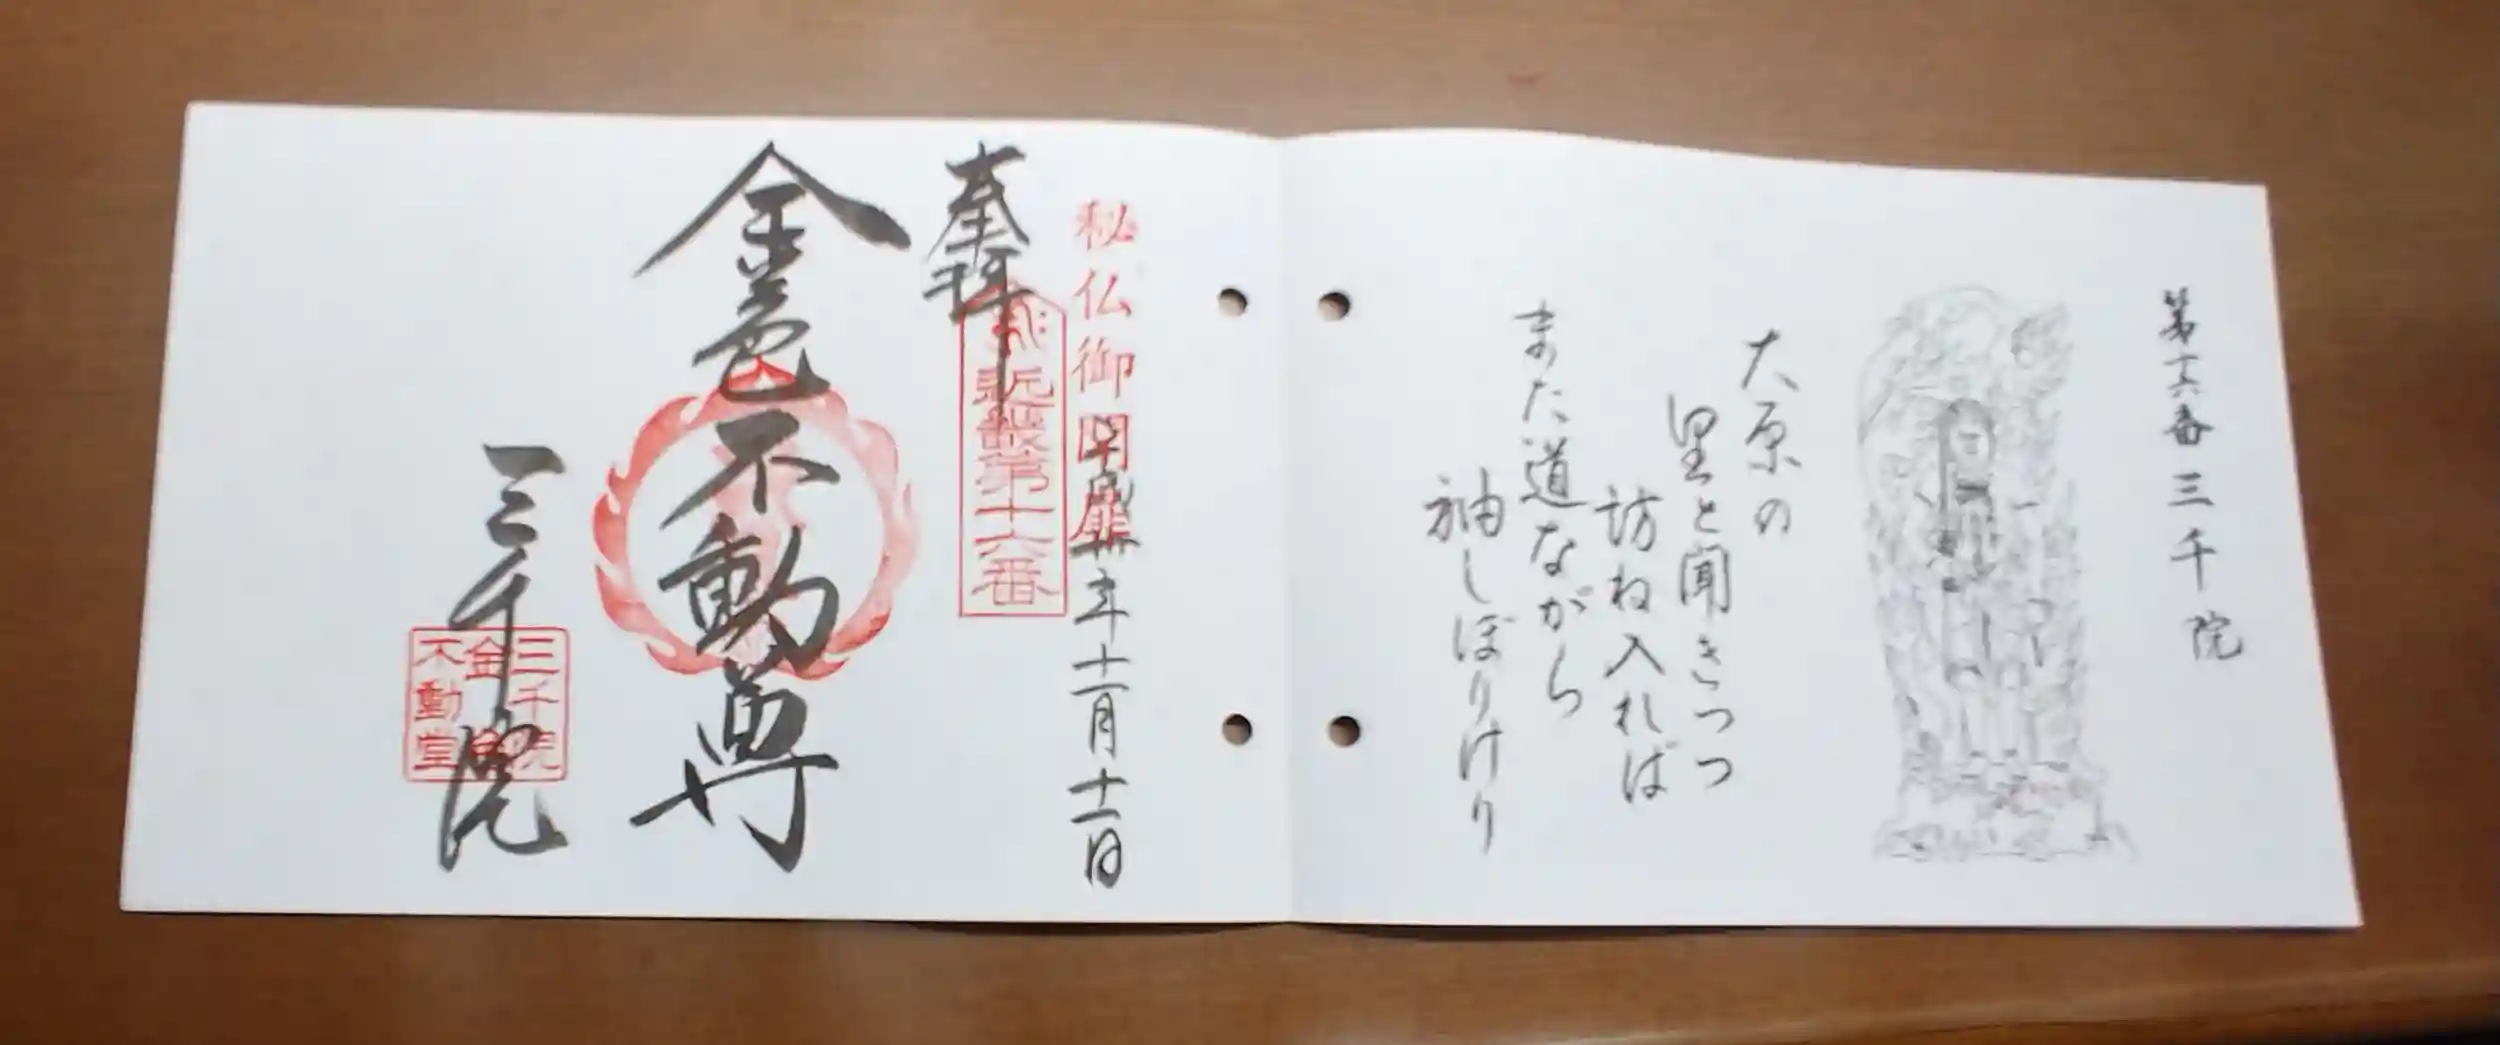 第十六番 三千院
大原の
里と聞きつつ
訪ね入れば
また道ながら
袖しぼりけり
秘仏御開扉
平成廿年十一月十一日
奉拝
近畿第十六番
金色不動尊
三千院
三千院
金色
不動堂